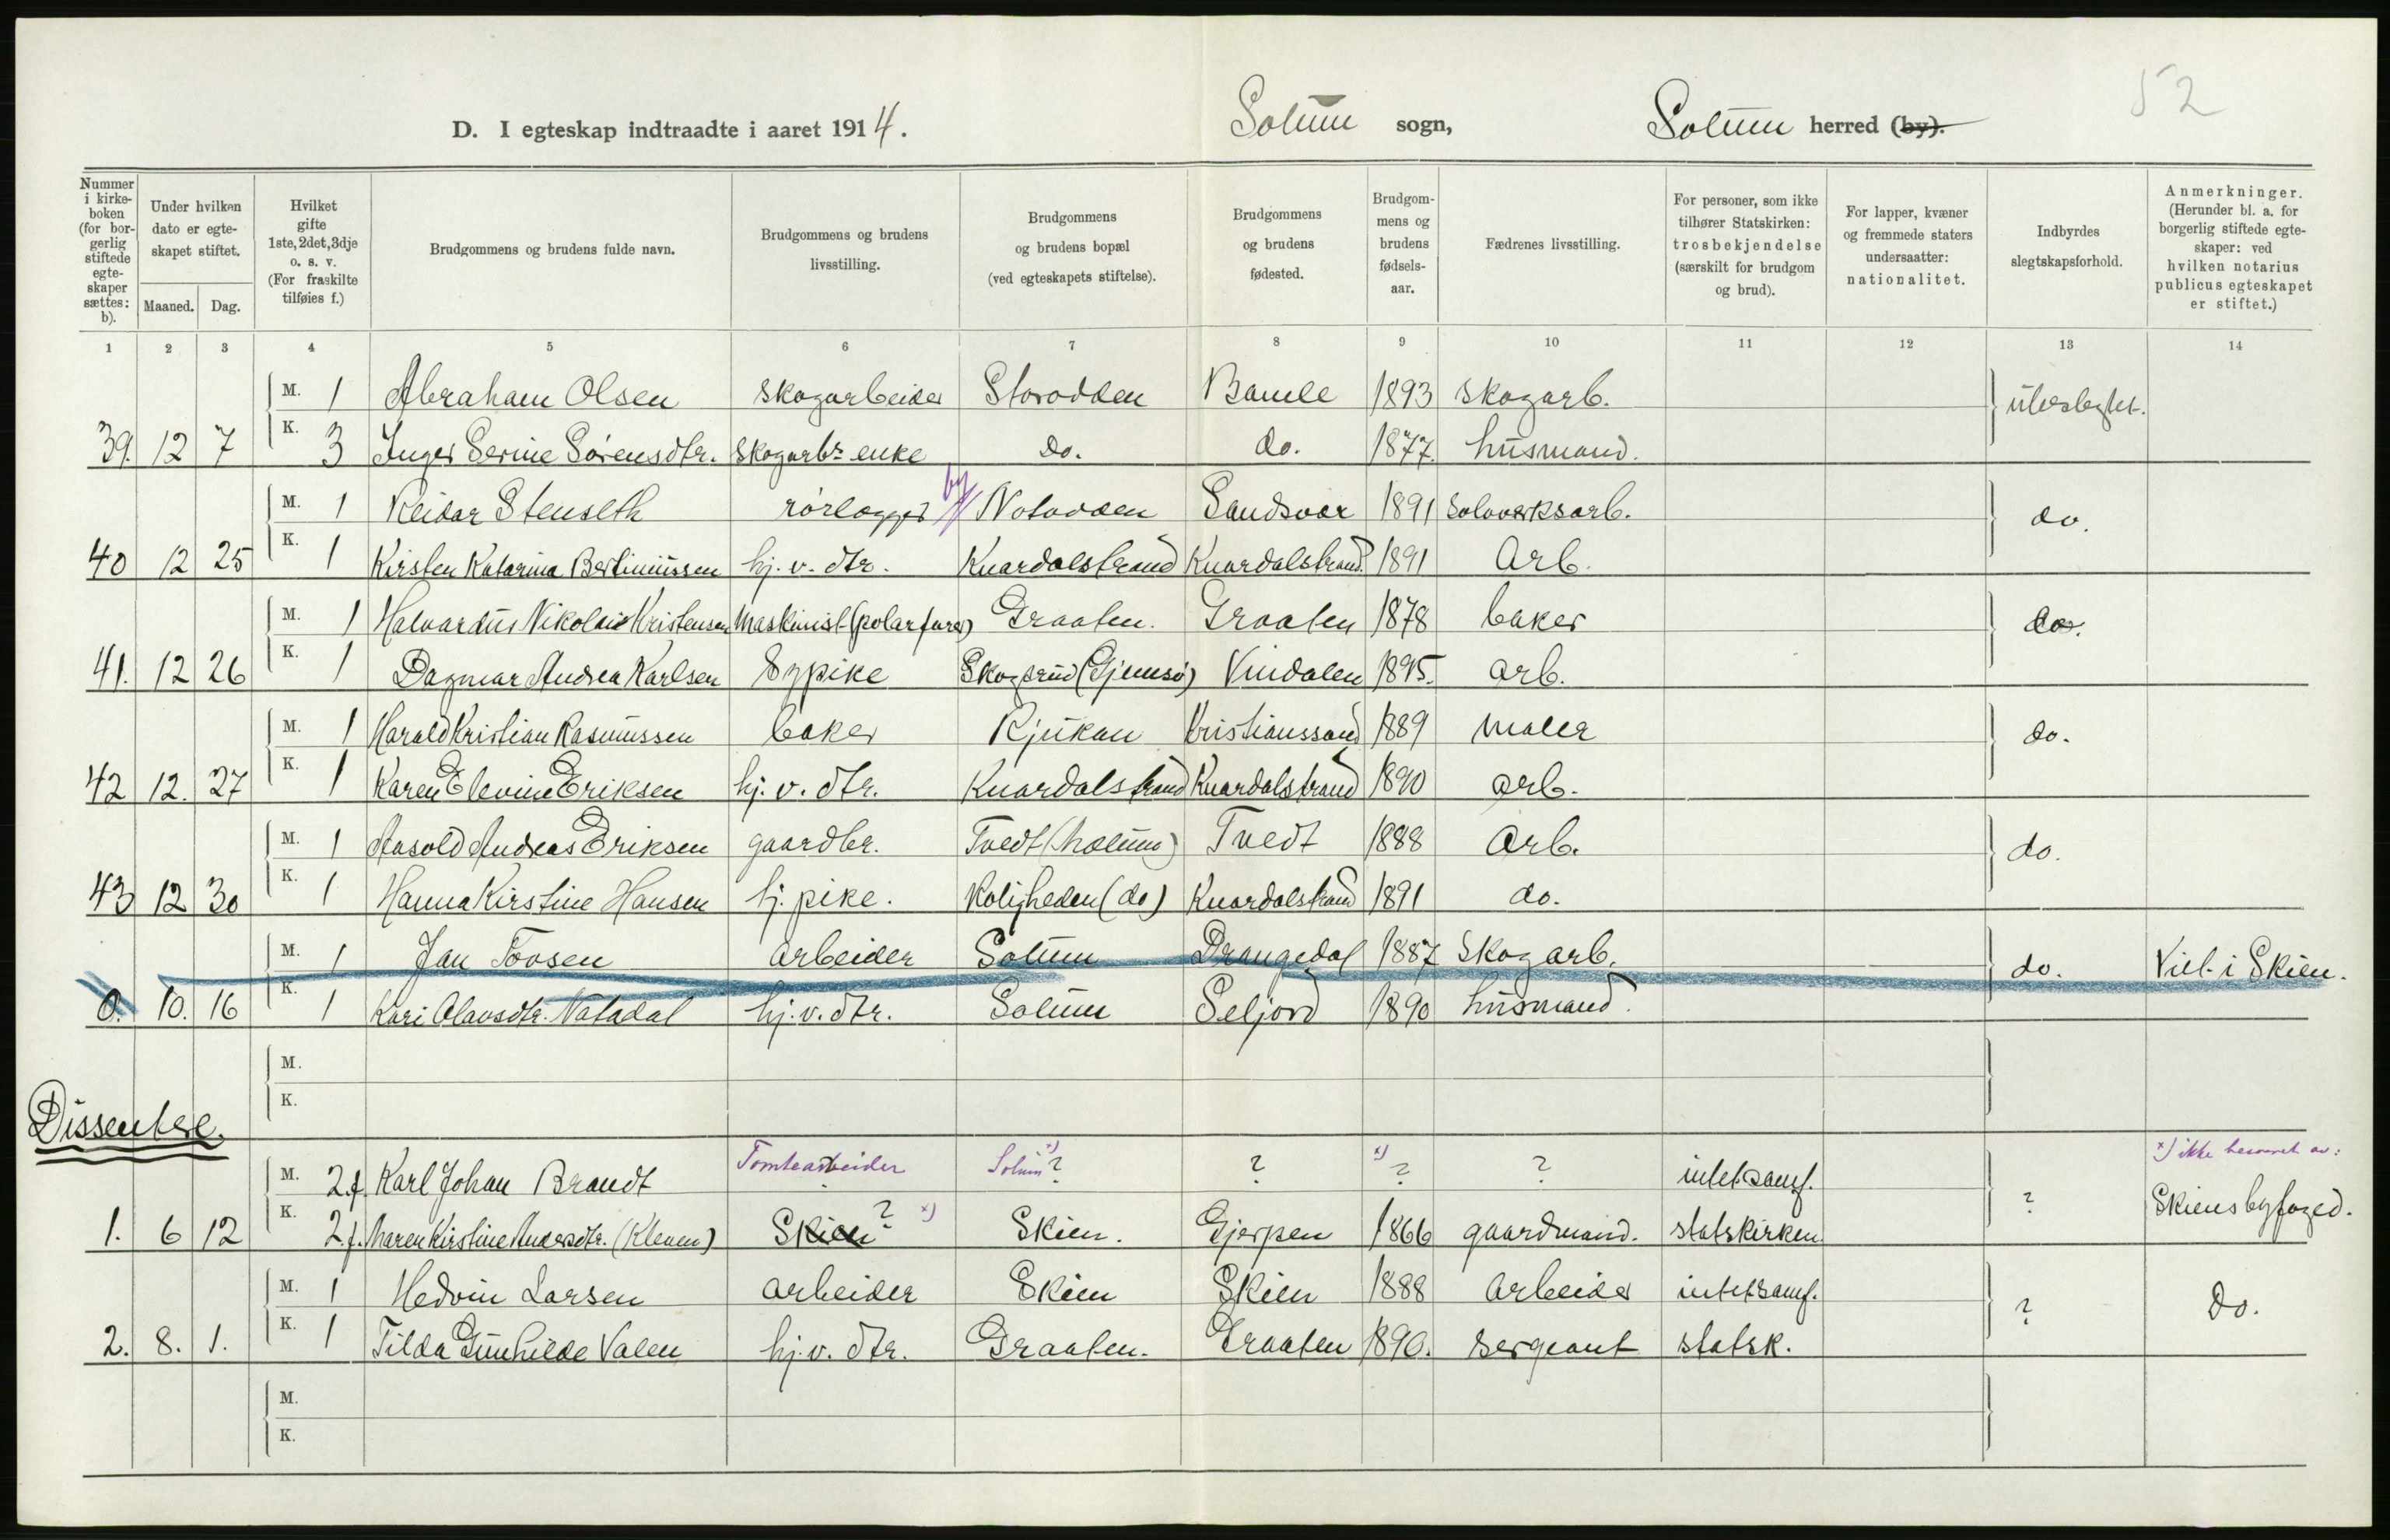 52
D. I egteskap indtraadte i aaret 1914. Solum sogn, Solum herred (by).
Nummer i kirkeboken (for borgerlig stiftede egteskaper sættes: b). Under hvilken dato er egteskapet stiftet. Maaned. Dag. Hvilket gifte 1ste, 2det, 3dje o. s. v. (For fraskilte tilføies f.) Brudgommens og brudens fulde navn. Brudgommens og brudens livsstilling. Brudgommens og brudens bopæl (ved egteskapets stiftelse). Brudgommens og brudens fødested. Brudgommens og brudens fødselsaar. Fædrenes livsstilling. For personer, som ikke tilhører Statskirken: trosbekjendelse (særskilt for brudgom og brud). For lapper, kvæner og fremmede staters undersaatter: nationalitet. Indbyrdes slegtskapsforhold. Anmerkninger. (Herunder bl. a. for borgerlig stiftede egteskaper: ved hvilken notarius publicus egteskapet er stiftet.)
1 2 3 4 5 6 7 8 9 10 11 12 13 14
M. 1 Abraham Olsen skogarbeider Storodden Bamle 1893 skogarb. ubeslegtet.
39. 12 7 K. 3 Inger Serine Sørensdtr. Skogarbr. enke do. do. 1877. husmand.
by
M. 1 Reidar Stenseth rørlægger Notodden Sandsvær 1891 Solvverksarb. do.
40 12 25 K. 1 Kirsten Katarina Bertinussen hj. v. dtr. Knardalstrand Knardalstrand. 1891 Arb.
M. 1 Halvardus Nikolai Kristensen Maskinist (polarfarer) Graaten. Graaten 1878 baker do.
41. 12 26 K. 1 Dagmar Andrea Karlsen Sypike Skogsrud (Gjemsø) Vindalen 1895. arb.
M. 1 Harald Kristian Rasmussen baker Rjukan Kristianssand 1889 maler do.
42 12. 27 K. 1 Karen Elevine Eriksen hj. v. dtr. Knardalstrand Knardalstrand 1890 arb.
M. 1 Aasold Andreas Eriksen gaardbr. Tvedt (Mælum) Tvedt 1888 Arb. do.
43 12 30 K. 1 Hanna Kirstine Hansen hj. pike. Roligheden (do) Knardalstrand 1891 do.
M. 1 Jan Tovsen arbeider Solum Drangedal 1887 Skogarb. do. Viet i Skien.
0. 10. 16 K. 1 Kari Olavsdtr. Natadal hj. v. dtr. Solum Seljord 1890 husmand.
M.
K.
Dissentere.
M. 2 f. Karl Johan Brandt Tomtearbeider Solum x) ? ? x) ? ? intet samf. ? x) ikke besvaret av:
1. 6 12 K. 2. f. Maren Kirstine Andersdtr. (Kleven) Skien ? x) Skien. Gjerpen 1866 gaardmand. statskirken Skiens byfoged.
M. 1 Hedvin Larsen arbeider Skien Skien 1888 arbeider intet samf. ? do.
2. 8. 1. K. 1 Tilda Gunhilde Valen hj. v. dtr. Graaten. Graaten 1890. sergeant statsk.
M.
K.